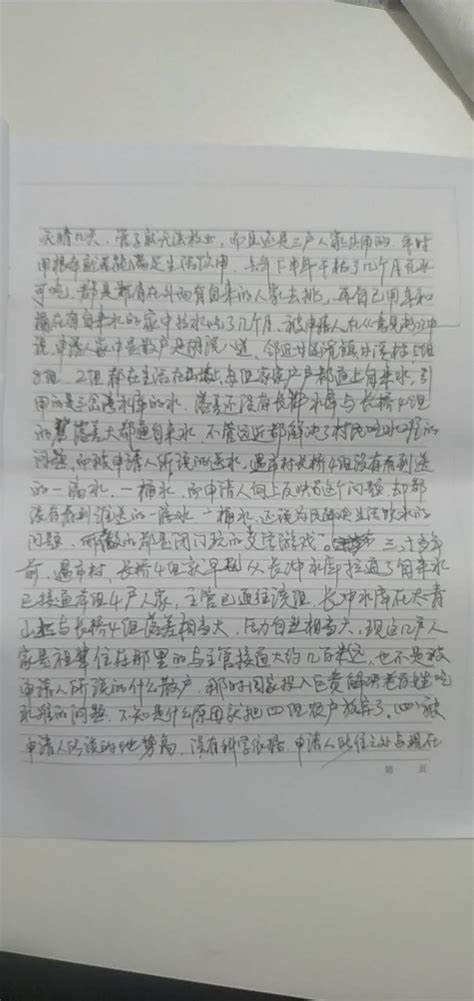 天晴几天,管子就无法接水,而且还是三户人家共用的,平时
用根本就不能满足生活饮用,去年下半年干枯了几个月无水
可吃,都是都有在外面有自来的人家去挑,再自己用车和
桶在有自来水的家中拉水吃了几个月,被申请人在《意见书》中
说,申请人家中是散户是
8组,2组都在生活在山上,每组家家户户都通上自来水,引
用的是三岔水库的水,落差还没有长冲水库与长桥4组
的落差大都通自来水,不管远近都解决了村民吃水难的
问题,而被申请人所说的送水,遇市村长桥4组没有看到送
的一滴水,一桶水,而申请人向上反映为这个问题,却都
没有看到谁送的一滴水一桶水,还谈为民解决生活饮水的
问题,所做的都是闭门玩的文字游戏。三十多年
前,遇市村,长桥4组就早已从长冲水库接通了自来水
已接通本组4户人家,主管已通往该组,长冲水库在大青
山上与长桥4组落差相当大,压力自然相当大,现这几户人
家是祖辈住在那里的与主管接通大约几百米远,也不是被
申请人所说的什么散户,那时国家投入巨资解决老百姓吃
水难的问题,不知是什么原因就把四组农户放弃了。(四)被
申请人所谈的地势高,没有科学依据,申请人所住之处与现在
第 页